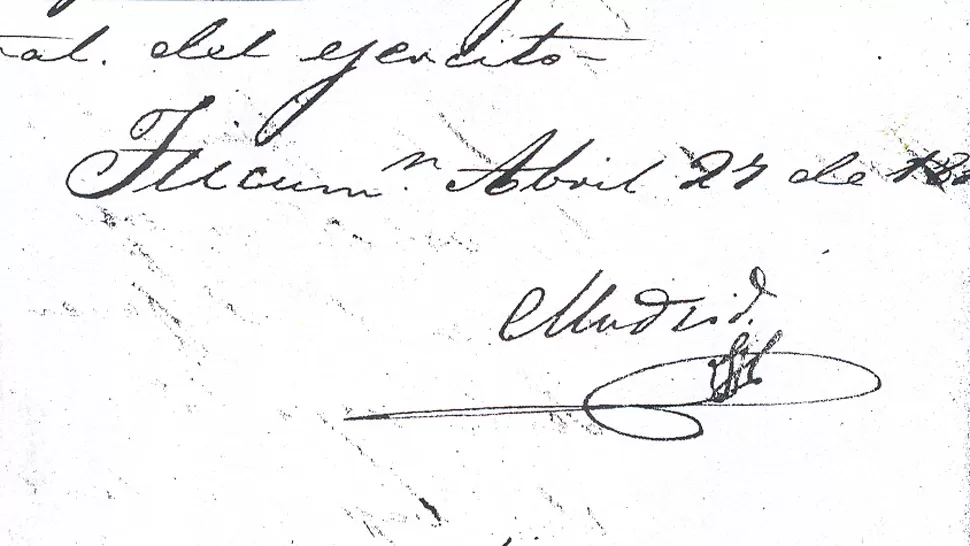 al. del ejercito
Tucum.ⁿ Abril 27 de 18
Madrid.